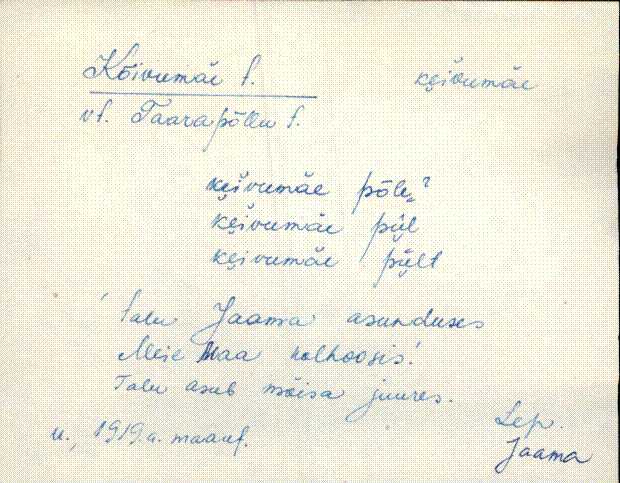 Kõivumäe t. kęivumäe
vt. Taarapõllu t.
kęivumäe põle?
kęivumäe pül
kęivumäe pült
Talu Jaama asunduses
Meie Maa kolhoosis.
Talu asub mõisa juures.
u., 1919.a. maaref.
Lep.
Jaama